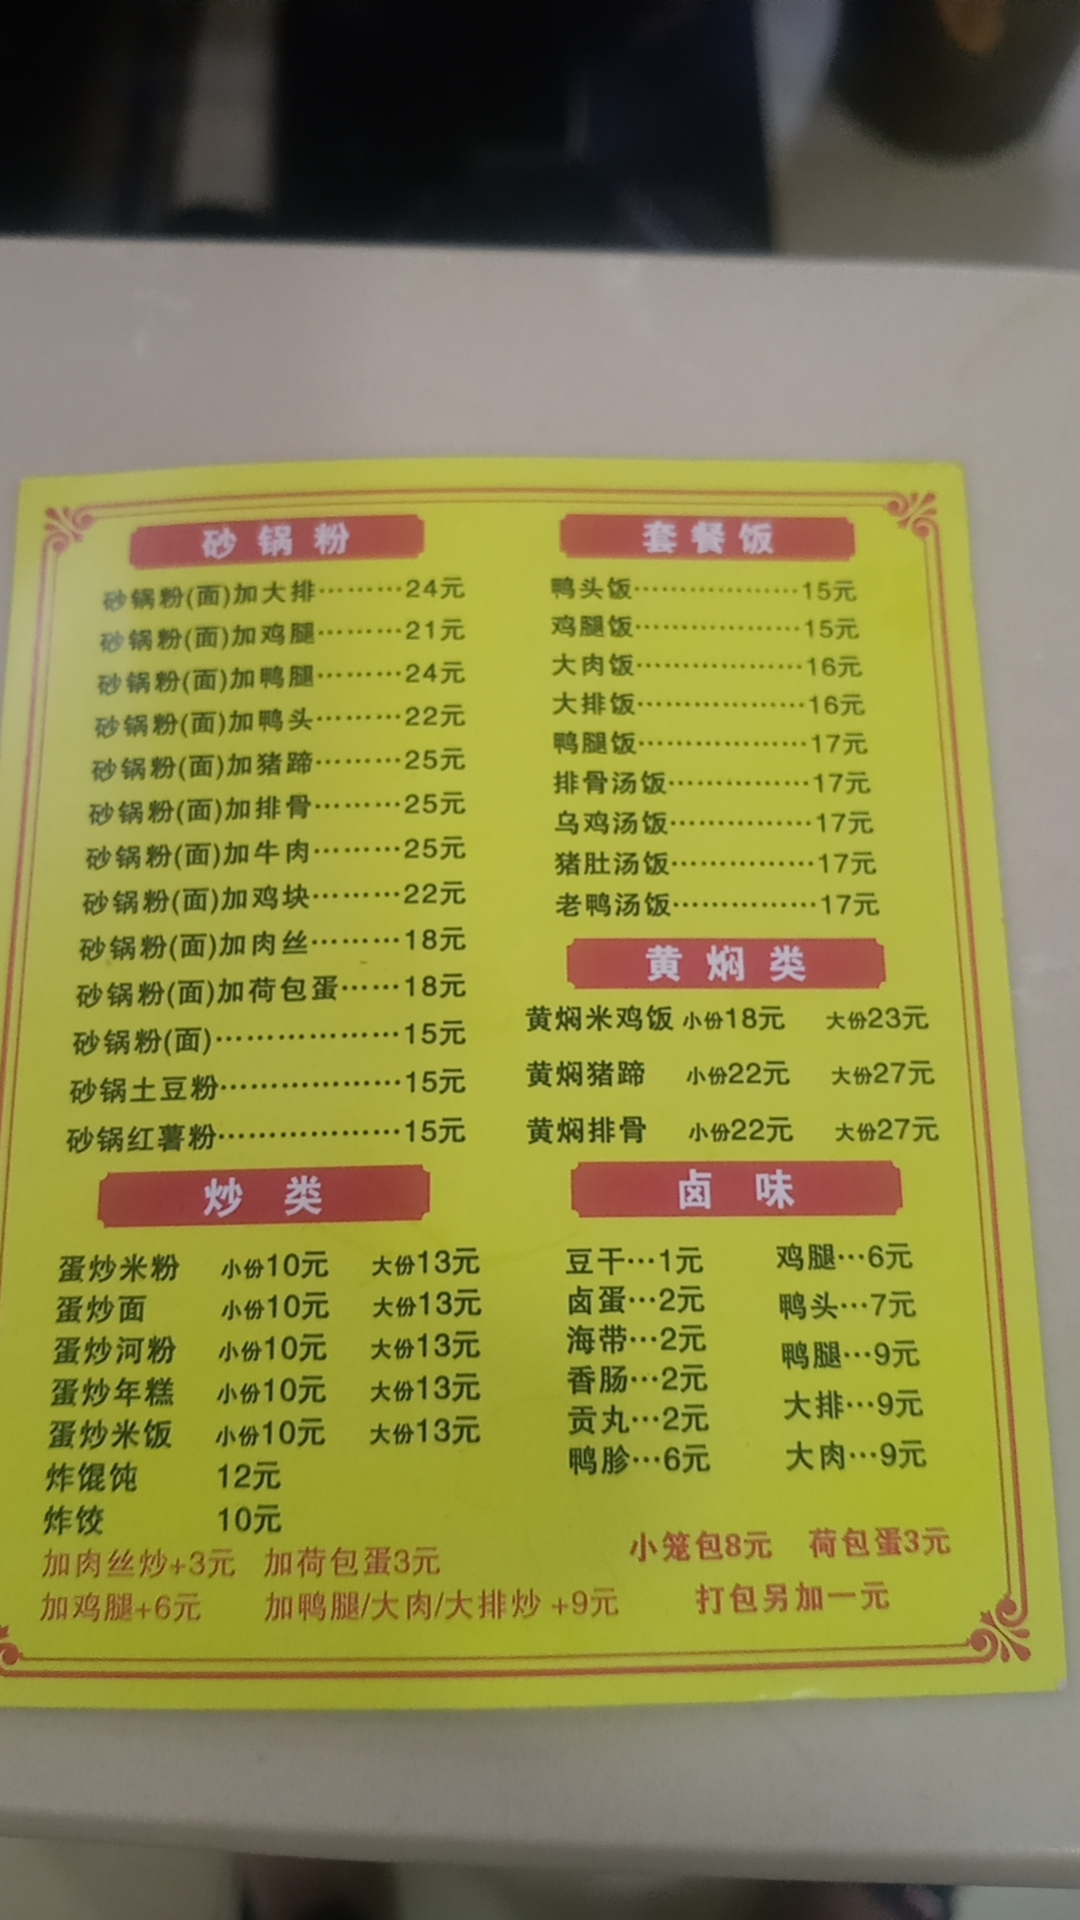 砂锅粉
砂锅粉(面)加大排………24元
砂锅粉(面)加鸡腿………21元
砂锅粉(面)加鸭腿………24元
砂锅粉(面)加鸭头………22元
砂锅粉(面)加猪蹄………25元
砂锅粉(面)加排骨………25元
砂锅粉(面)加牛肉………25元
砂锅粉(面)加鸡块………22元
砂锅粉(面)加肉丝………18元
砂锅粉(面)加荷包蛋……18元
砂锅粉(面)………………15元
砂锅土豆粉………………15元
砂锅红薯粉………………15元
套餐饭
鸭头饭………………15元
鸡腿饭………………15元
大肉饭………………16元
大排饭………………16元
鸭腿饭………………17元
排骨汤饭……………17元
乌鸡汤饭……………17元
猪肚汤饭……………17元
老鸭汤饭……………17元
黄焖类
黄焖米鸡饭 小份18元 大份23元
黄焖猪蹄 小份22元 大份27元
黄焖排骨 小份22元 大份27元
炒类
蛋炒米粉 小份10元 大份13元
蛋炒面 小份10元 大份13元
蛋炒河粉 小份10元 大份13元
蛋炒年糕 小份10元 大份13元
蛋炒米饭 小份10元 大份13元
炸馄饨 12元
炸饺 10元
加肉丝炒+3元 加荷包蛋3元
加鸡腿+6元 加鸭腿/大肉/大排炒 +9元
卤味
豆干…1元 鸡腿…6元
卤蛋…2元 鸭头…7元
海带…2元 鸭腿…9元
香肠…2元 大排…9元
贡丸…2元 大肉…9元
鸭胗…6元
小笼包8元 荷包蛋3元
打包另加一元